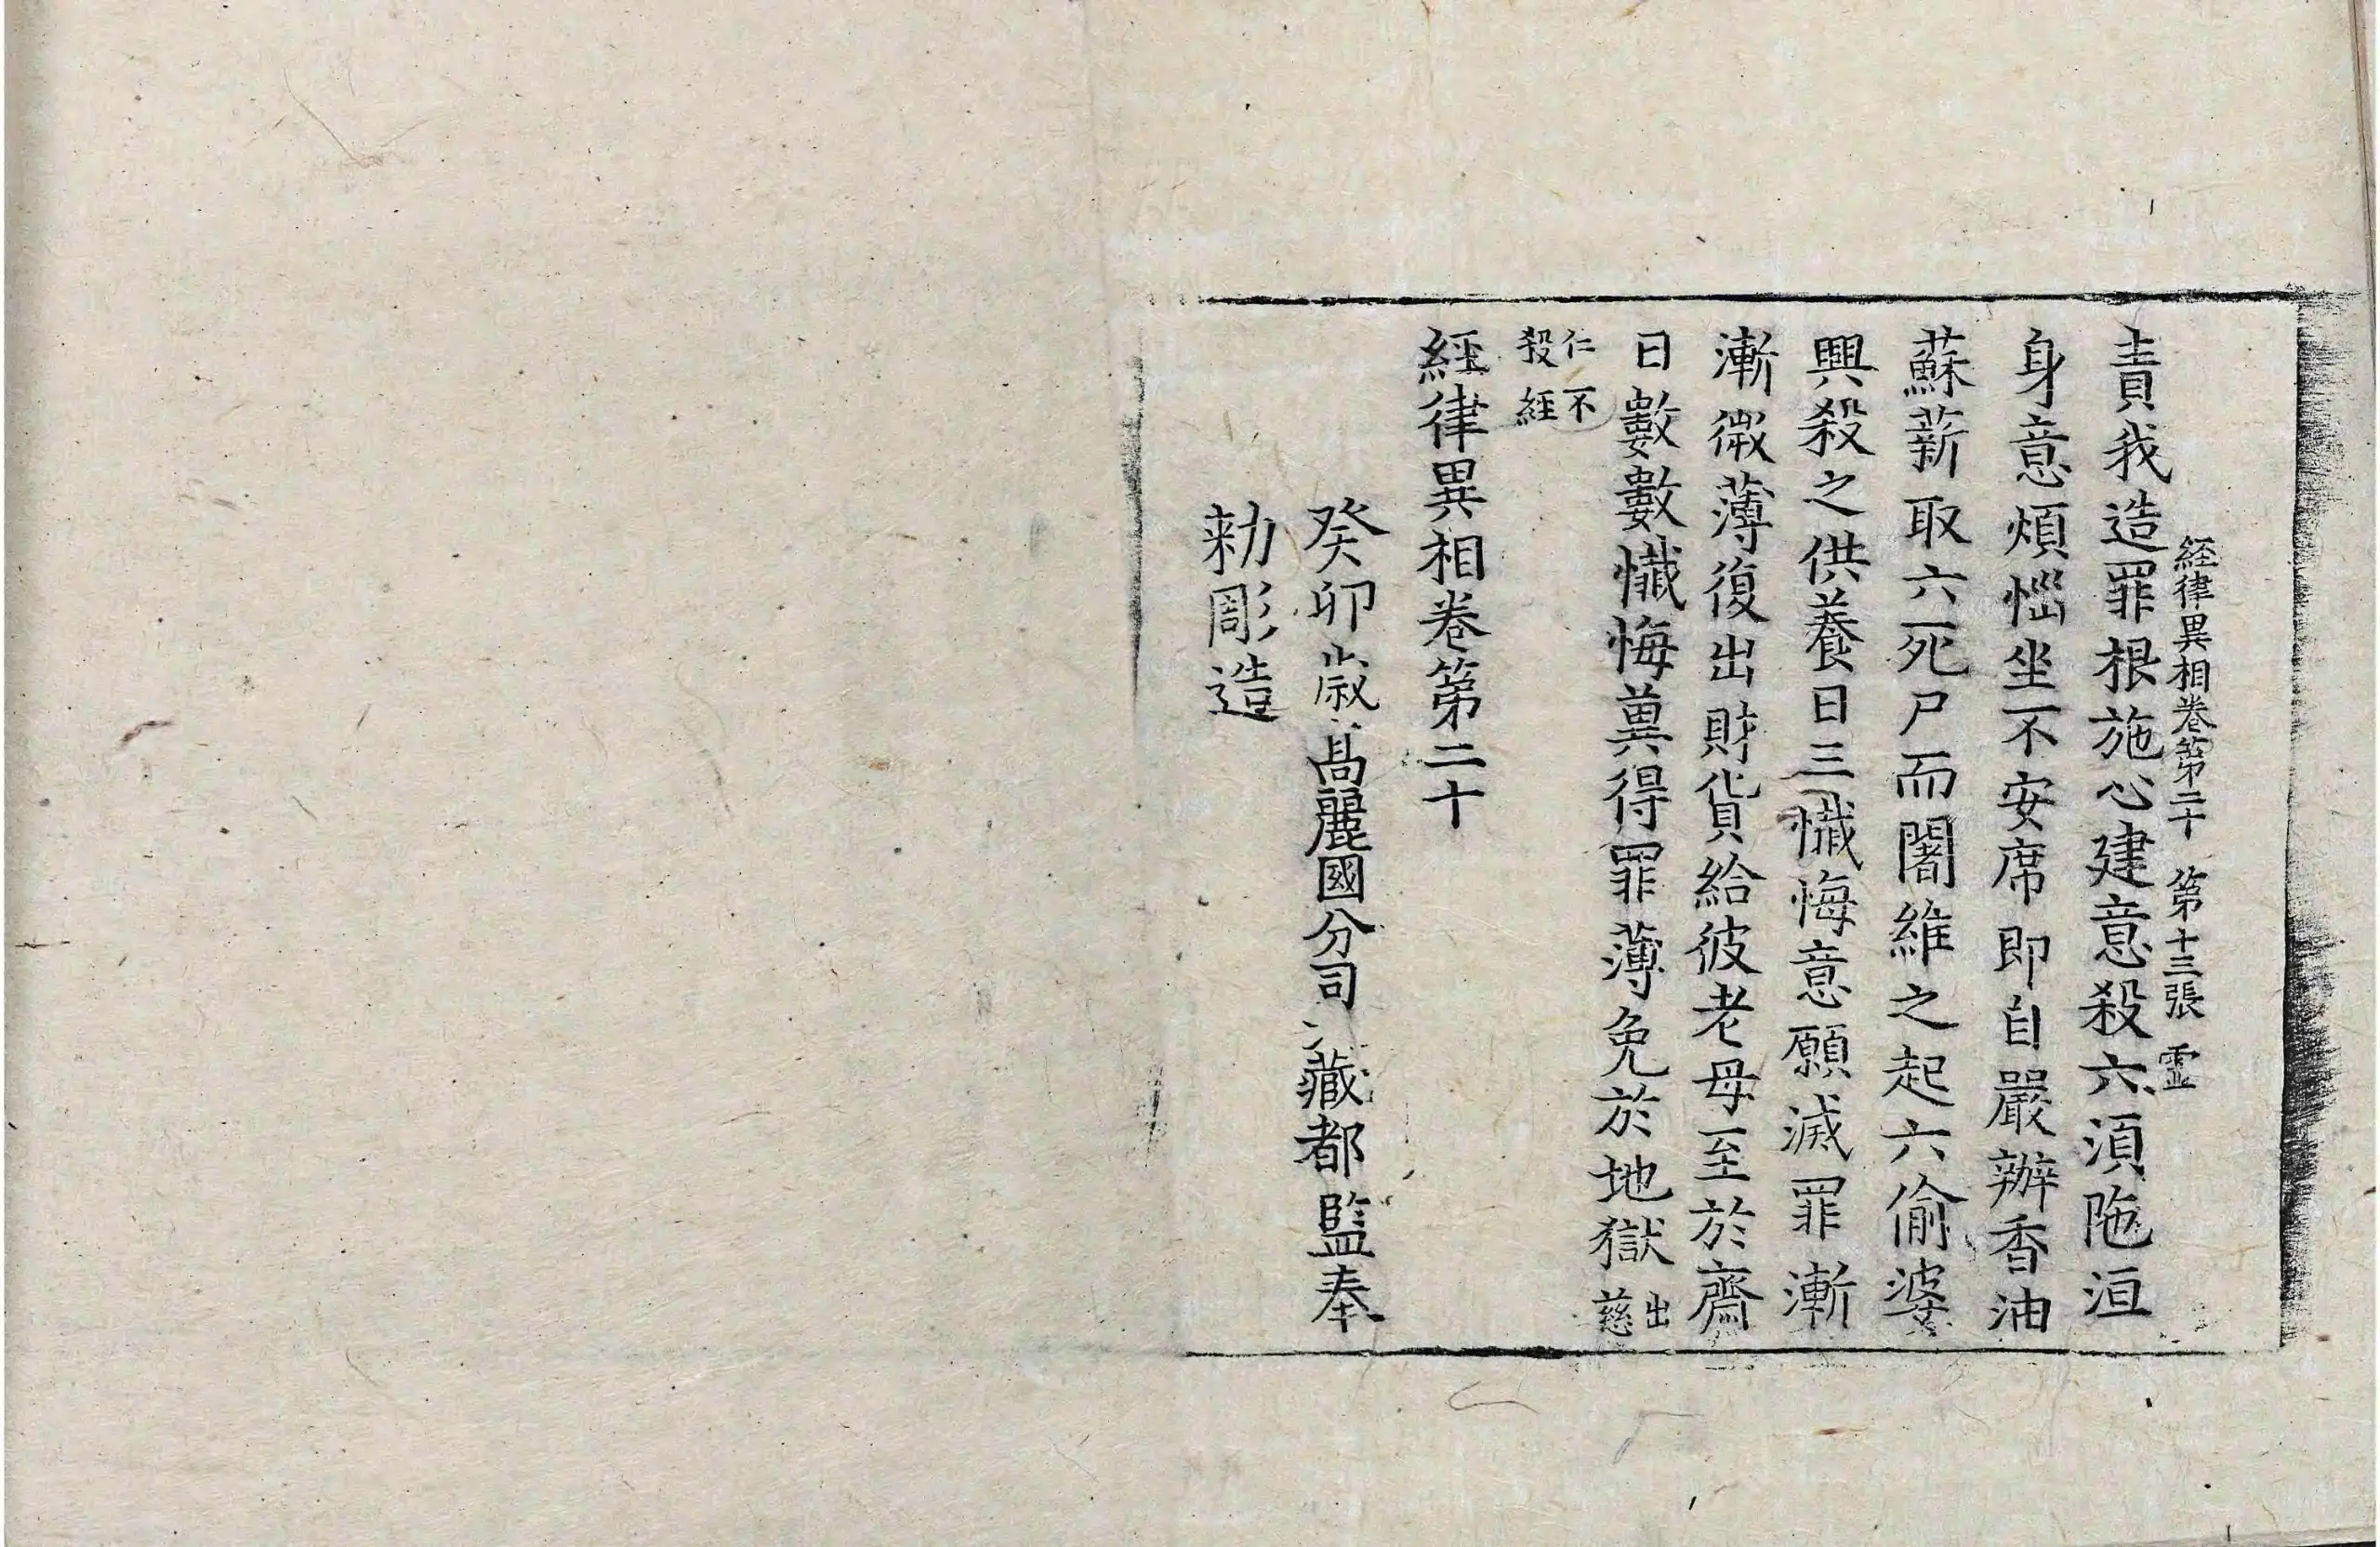 経律異相卷第二十 第十三張 霊
責我造罪根施心建意殺六湏陁洹
身意煩惱坐不安席即自嚴辦香油
蘇薪取六死尸而闍維之起六偷婆
興殺之供養日三懺悔意願滅罪漸
漸微薄復出財貨給彼老母至於齋
日數數懺悔兾得罪薄免於地獄出慈
仁不殺經
經律異相卷第二十
癸卯歲高麗國分司藏都監奉
勑彫造